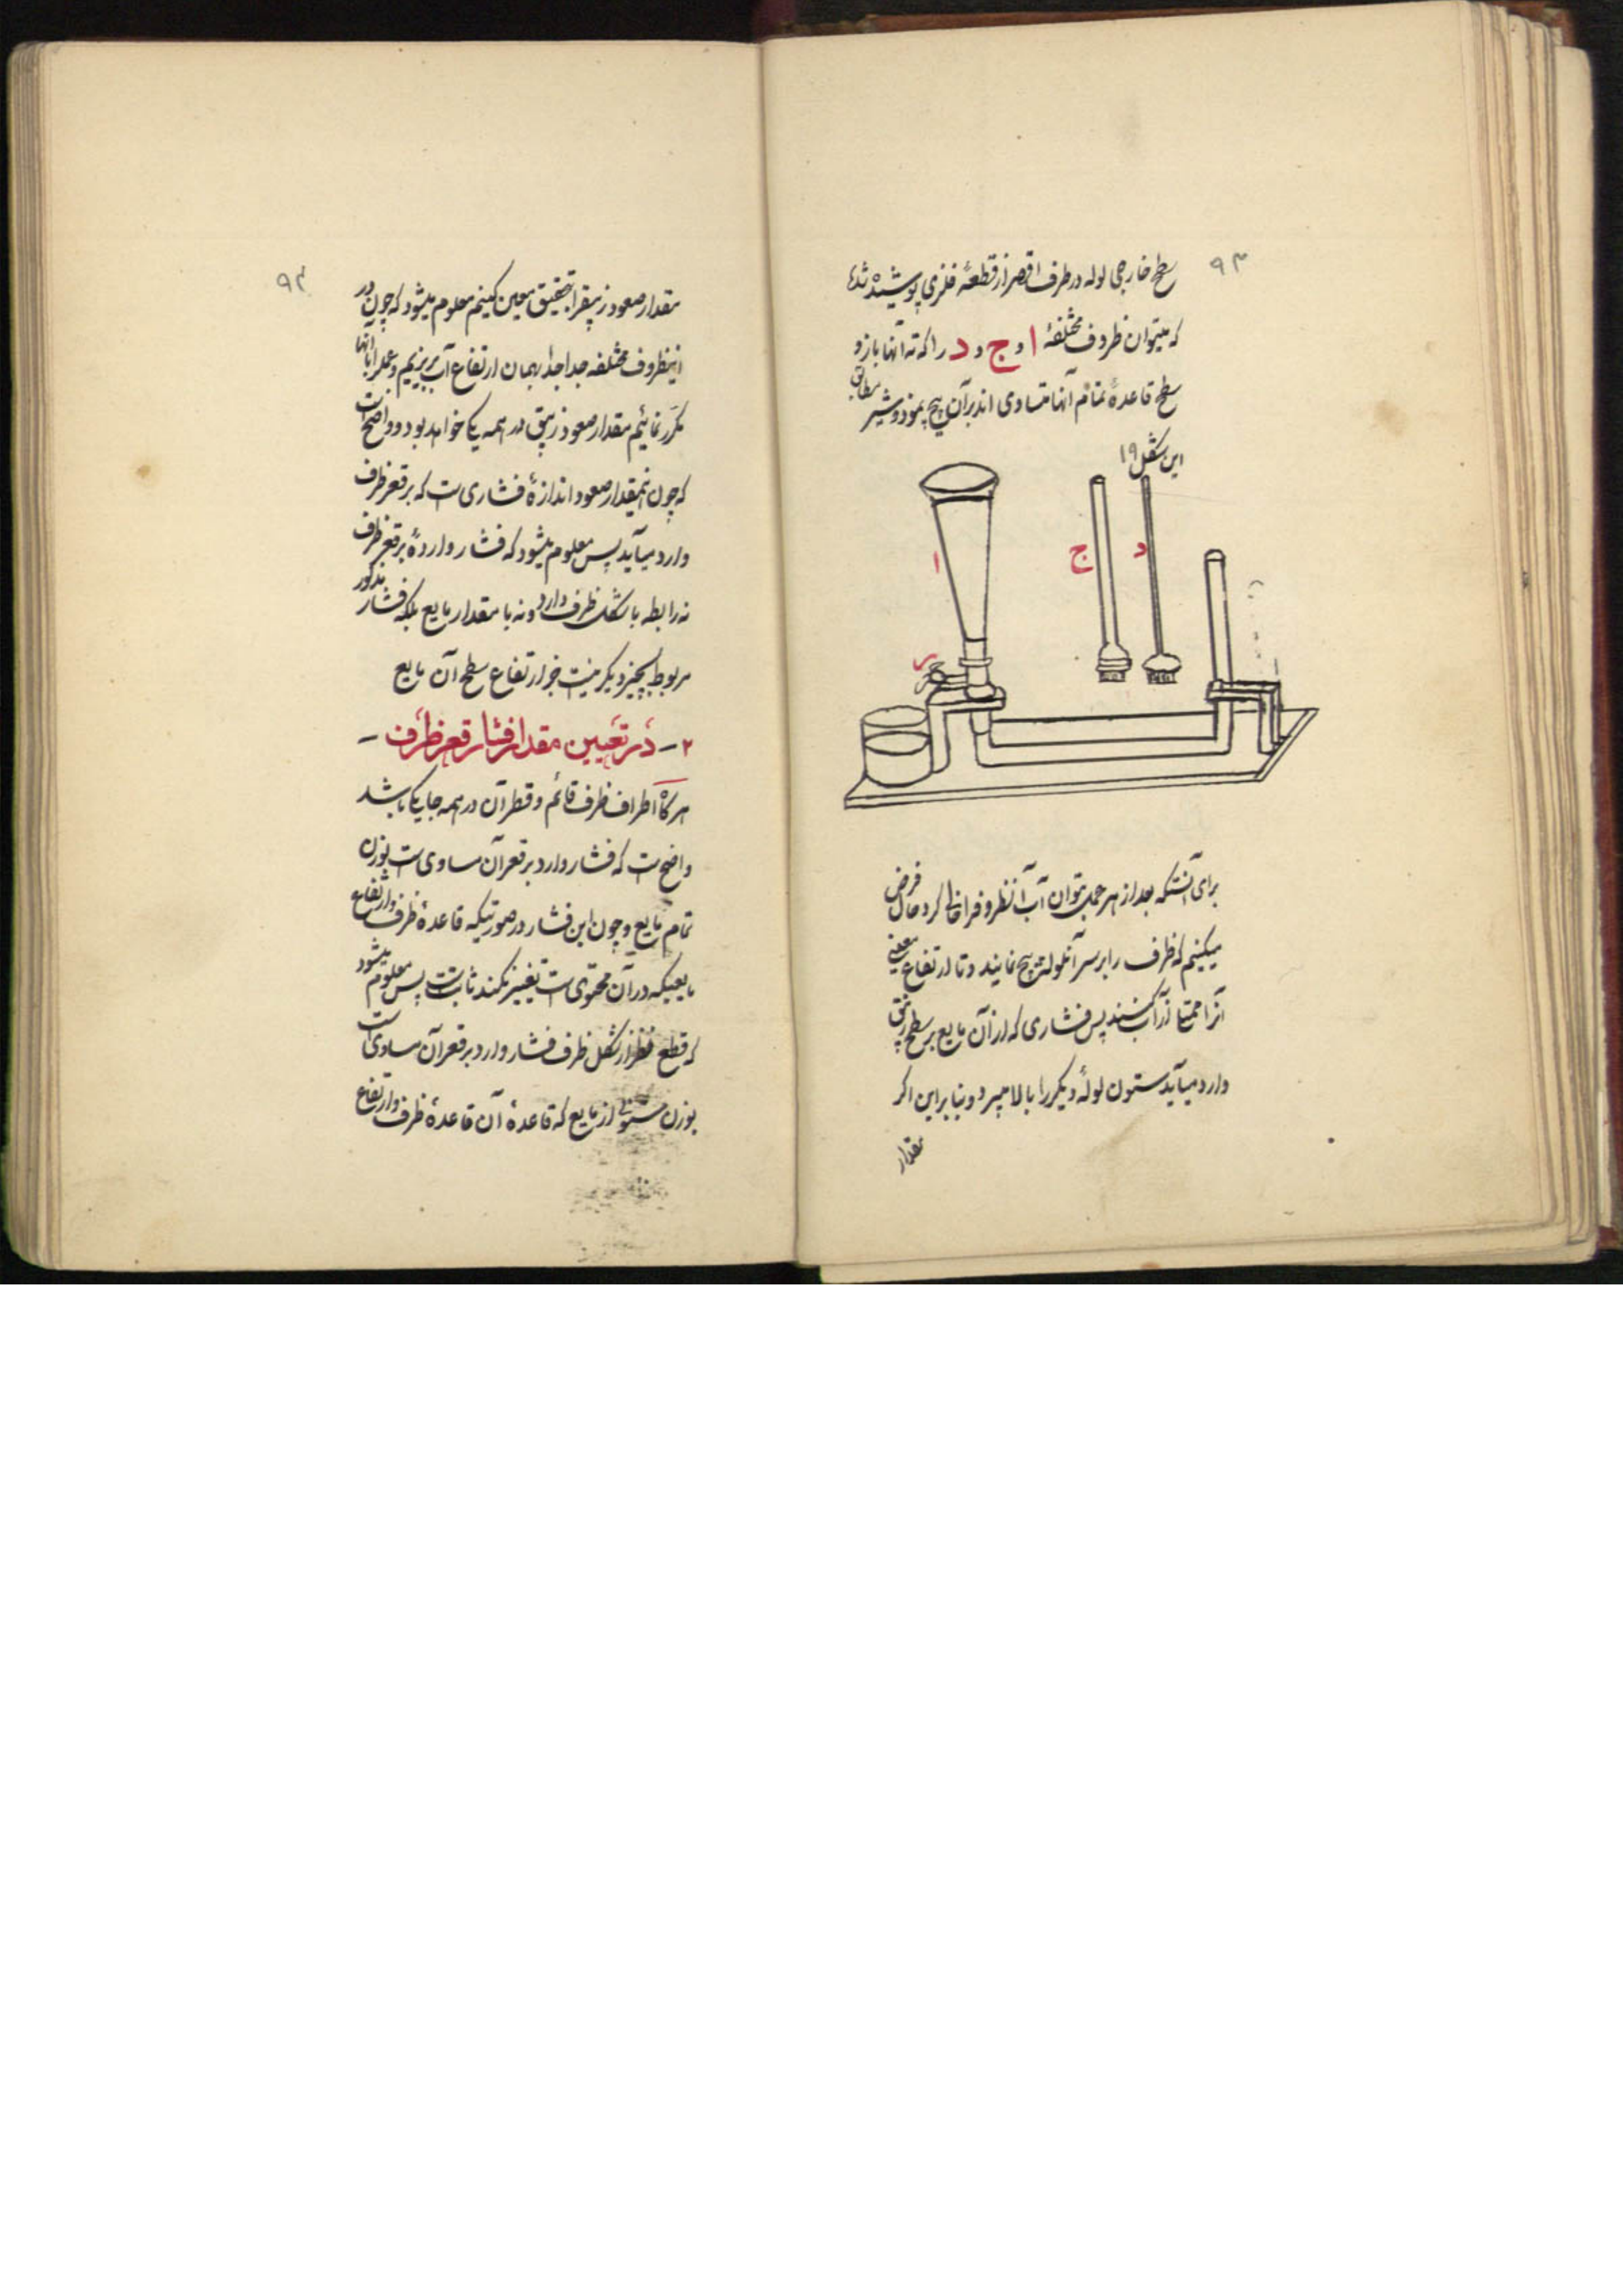 ۹۳
سطح خارجی لوله در طرف اقصر از قطعهٔ فلزی پوشیده شده
که میتوان ظروف مختلفهٔ ا و ج و د را که ته آنها باز و
سطح قاعدهٔ تمام آنها متساوی اند بر آن پیچ نمود و شیر مطابق
این شکل ۱۹
ا
ج
د
ر
برای آنست که بعد از هر عمل بتوان آب آنظروفرا خالی کرد حال فرض
میکنیم که ظرف را بر سر آنلوله پیچ نمایند و تا ارتفاع معینی
آنرا ممتلا از آب کنند پس فشاری که از آن مایع بر سطح زیبق
وارد میآید ستون لولهٔ دیگر را بالا میبرد و بنابراین اگر
مقدار
۹۴
مقدار صعود زیبقرا بتحقیق معین کنیم معلوم میشود که چون در
اینظروف مختلفه جداجدا بهمان ارتفاع آب بریزیم و عمل را با آنها
مکرر نمائیم مقدار صعود زیبق در همه یکی خواهد بود و واضح است
که چون اینمقدار صعود اندازهٔ فشاری است که بر قعر ظرف
وارد میآید پس معلوم میشود که فشار واردهٔ بر قعر ظرف
نه رابطه با شکل ظرف دارد و نه با مقدار مایع بلکه فشار مذکور
مربوط بچیز دیگر نیست جز ارتفاع سطح آن مایع
۲ – در تعیین مقدار فشار قعر ظرف –
هرگاه اطراف ظرف قائم و قطر آن در همه جا یکی باشد
واضح است که فشار وارد بر قعر آن مساوی است بوزن
تمام مایع و چون این فشار در صورتیکه قاعدهٔ ظرف و ارتفاع
مایعیکه در آن محتوی است تغییر نکند ثابت است پس معلوم میشود
که قطع نظر از شکل ظرف فشار وارد بر قعر آن مساوی است
بوزن ستونی از مایع که قاعدهٔ آن قاعدهٔ ظرف و ارتفاع